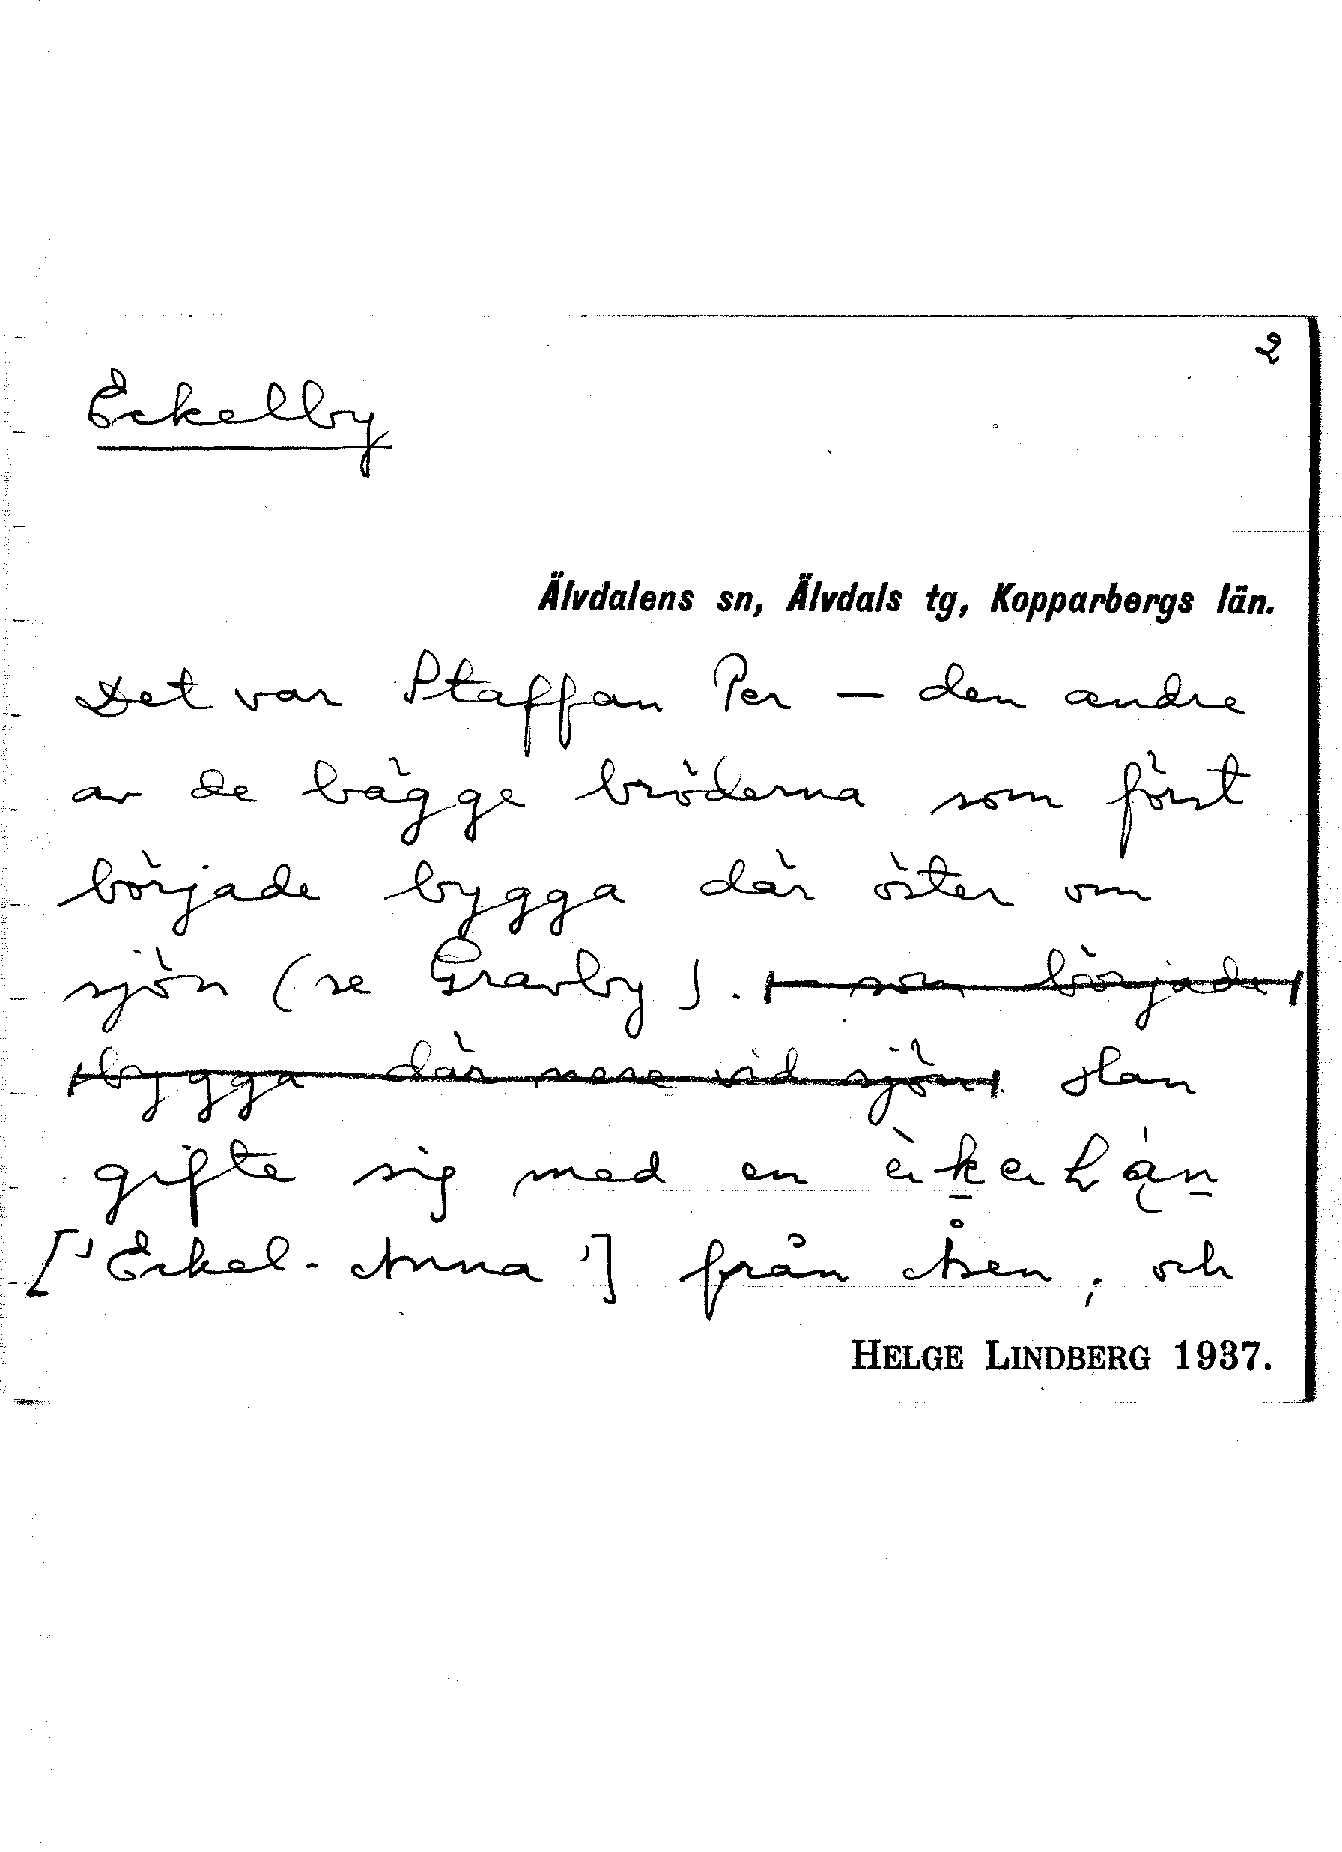 2
Eckelby
Älvdalens sn, Älvdals tg, Kopparbergs län.
Det var Staffan Per — den andre
av de bägge bröderna som först
började bygga där öster om
sjön (se Gravby). som började
bygga där nere vid sjön Han
gifte sig med en
['Eckel-Anna'] från Åsen, och
HELGE LINDBERG 1937.